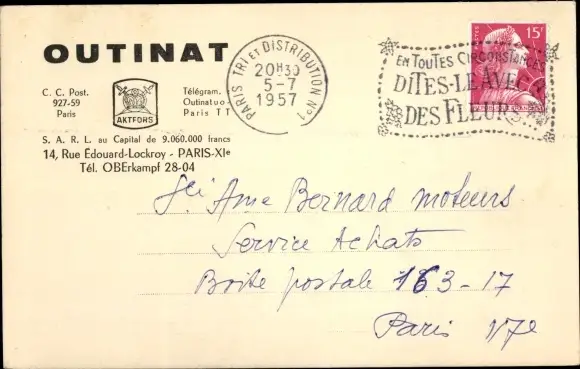 OUTINAT
C. C. Post.
927-59
Paris
AKTFORS
Télégram.
Outinatuo
Paris TT
S. A. R. L. au Capital de 9.060.000 francs
14, Rue Édouard-Lockroy - PARIS-XIe
Tél. OBErkampf 28-04
PARIS TRI ET DISTRIBUTION N°1
20H30
5-7
1957
15F
EN TOUTES CIRCONSTANCES
DITES-LE AVEC
DES FLEURS
Sté Ame Bernard moteurs
Service Achats
Boite postale 163-17
Paris 17e